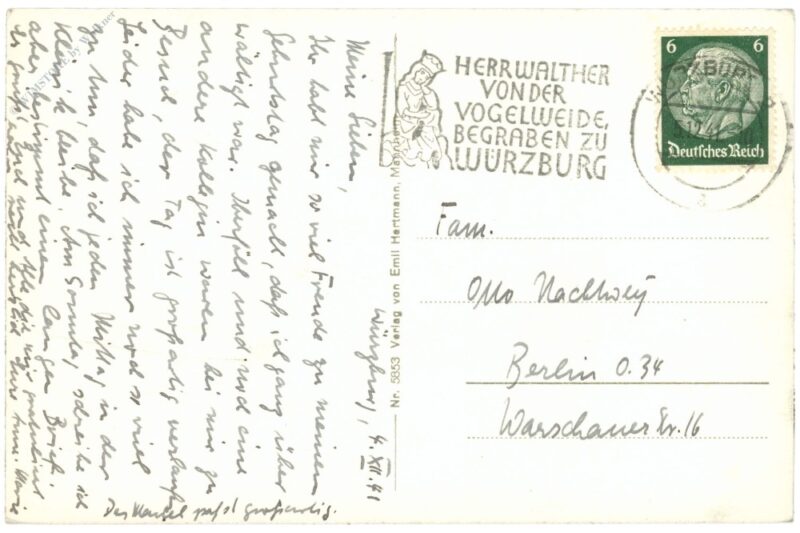 Würzburg, 4. XII. 41
Meine Lieben,
Ihr habt mir so viel Freude zu meinem
Geburtstag gemacht, daß ich ganz über
wältigt war. und eine
andere Kollegin waren bei mir zu
Besuch, der Tag ist großartig verlaufen
Leider habe ich immer noch so viel
zu tun, daß ich jeden Mittag in der
Klinik bleibe. Am Sonntag schreibe ich
aber bestimmt einen langen Brief.
Der Mantel paßt großartig.
HERR WALTHER
VON DER
VOGELWEIDE,
BEGRABEN ZU
WÜRZBURG
6 6
Deutsches Reich
WÜRZBURG 2
Fam.
Otto Nachtwey
Berlin O.34
Warschauer Str. 16
Nr. 5853 Verlag von Emil Hartmann,